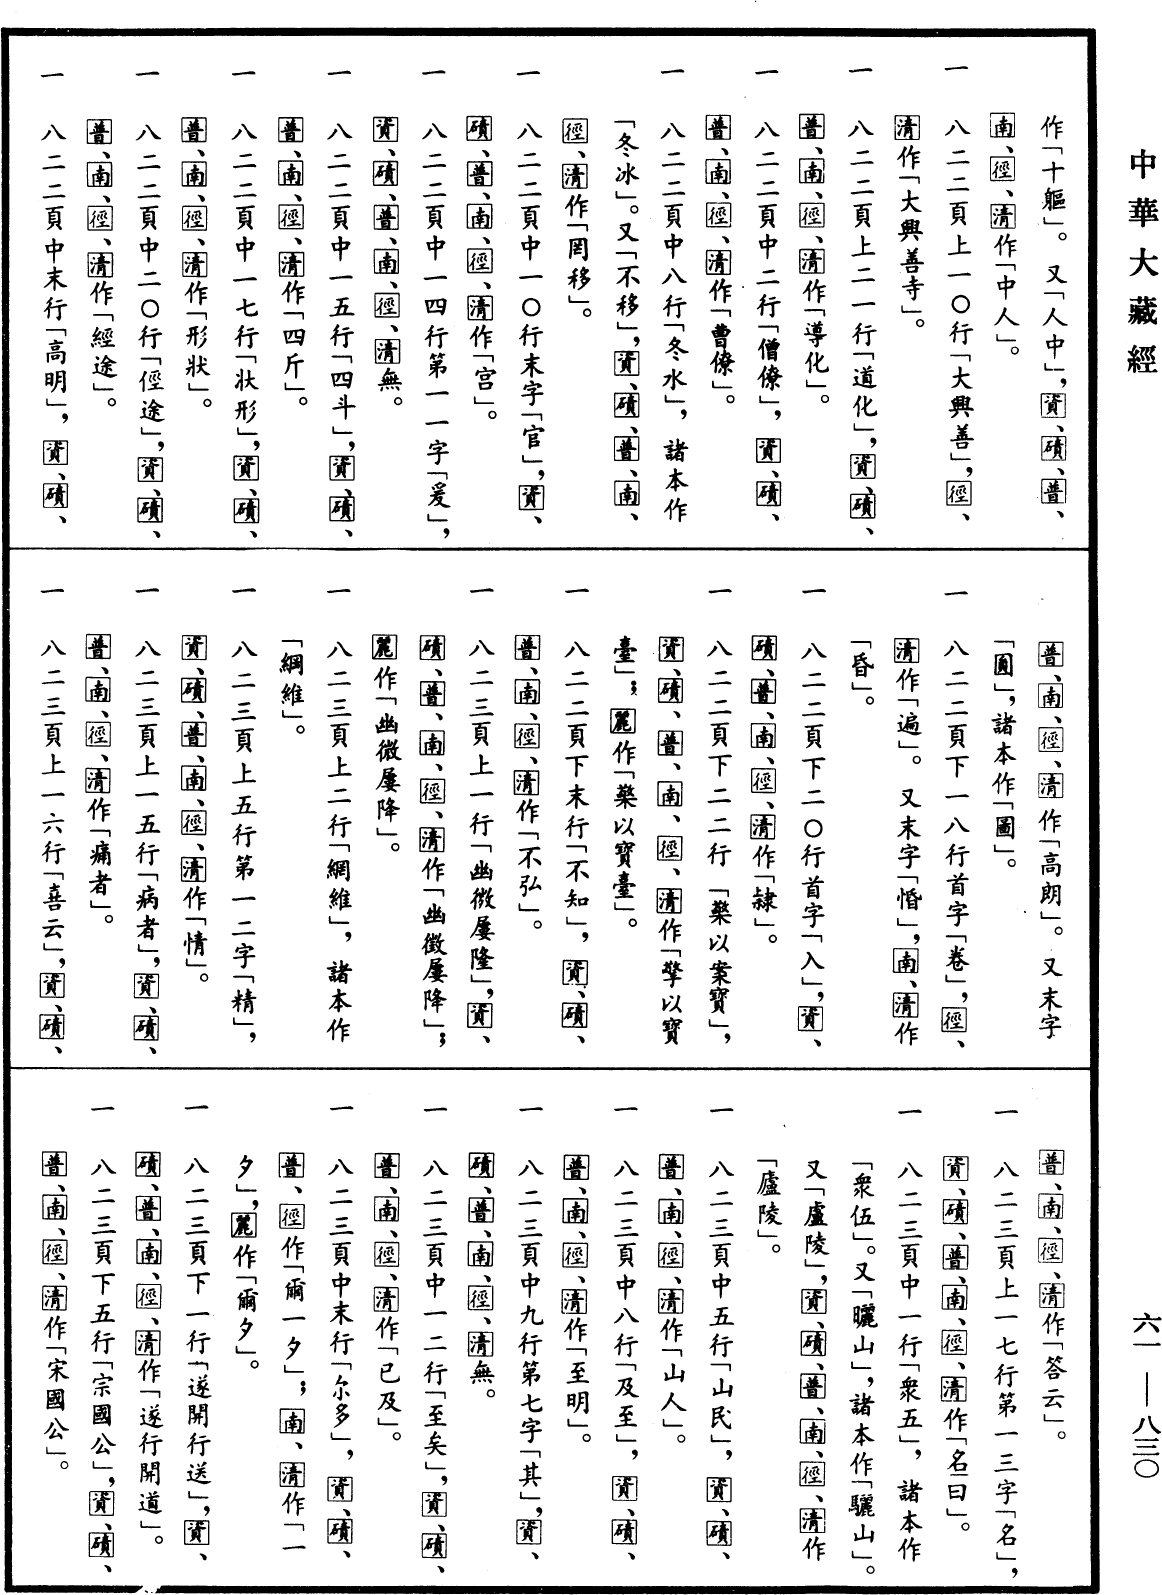 中華大藏經
六一——八三〇
作「十軀」。又「人中」，資、磧、普、
南、徑、清作「中人」。
一　八二二頁上一〇行「大興善」，徑、
清作「大興善寺」。
一　八二二頁上二一行「道化」，資、磧、
普、南、徑、清作「導化」。
一　八二二頁中二行「僧僚」，資、磧、
普、南、徑、清作「曹僚」。
一　八二二頁中八行「冬水」，諸本作
「冬冰」。又「不移」，資、磧、普、南、
徑、清作「罔移」。
一　八二二頁中一〇行末字「官」，資、
磧、普、南、徑、清作「宫」。
一　八二二頁中一四行第一一字「爰」，
資、磧、普、南、徑、清無。
一　八二二頁中一五行「四斗」，資、磧、
普、南、徑、清作「四斤」。
一　八二二頁中一七行「狀形」，資、磧、
普、南、徑、清作「形狀」。
一　八二二頁中二〇行「徑途」，資、磧、
普、南、徑、清作「經途」。
一　八二二頁中末行「高明」，資、磧、
普、南、徑、清作「高朗」。又末字
「圓」，諸本作「圖」。
一　八二二頁下一八行首字「卷」，徑、
清作「遍」。又末字「惛」，南、清作
「昏」。
一　八二二頁下二〇行首字「入」，資、
磧、普、南、徑、清作「隸」。
一　八二二頁下二二行「藥以案寶」，
資、磧、普、南、徑、清作「擎以寶
臺」；麗作「藥以寶臺」。
一　八二二頁下末行「不知」，資、磧、
普、南、徑、清作「不弘」。
一　八二三頁上一行「幽微屢隆」，資、
磧、普、南、徑、清作「幽徵屢降」；
麗作「幽微屢降」。
一　八二三頁上二行「網維」，諸本作
「綱維」。
一　八二三頁上五行第一二字「精」，
資、磧、普、南、徑、清作「情」。
一　八二三頁上一五行「病者」，資、磧、
普、南、徑、清作「痛者」。
一　八二三頁上一六行「喜云」，資、磧、
普、南、徑、清作「答云」。
一　八二三頁上一七行第一三字「名」，
資、磧、普、南、徑、清作「名曰」。
一　八二三頁中一行「衆五」，諸本作
「衆伍」。又「曬山」，諸本作「驪山」。
又「盧陵」，資、磧、普、南、徑、清作
「廬陵」。
一　八二三頁中五行「山民」，資、磧、
普、南、徑、清作「山人」。
一　八二三頁中八行「及至」，資、磧、
普、南、徑、清作「至明」。
一　八二三頁中九行第七字「其」，資、
磧、普、南、徑、清無。
一　八二三頁中一二行「至矣」，資、磧、
普、南、徑、清作「已及」。
一　八二三頁中末行「尔多」，資、磧、
普、徑作「爾一夕」；南、清作「一
夕」，麗作「爾夕」。
一　八二三頁下一行「遂開行送」，資、
磧、普、南、徑、清作「遂行開道」。
一　八二三頁下五行「宗國公」，資、磧、
普、南、徑、清作「宋國公」。